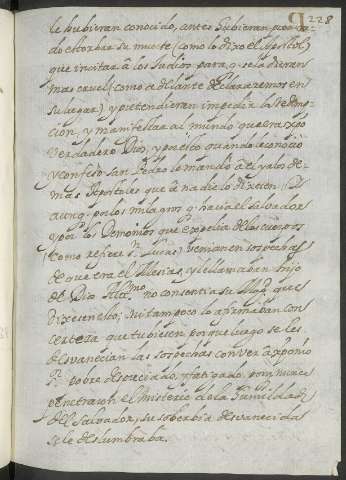 228
le hubieran conocido, antes hubieran procura
do estorbar su muerte (como lo dixo el Apostol)
que incitar a los Judios para q̃ se la dieran
mas cruel (como adelante declararemos en
su lugar) y pretendieran impedir la Redemp
cion, y manifestar al mundo que era xp̃o
verdadero Dios, y por esto quando le conoció
y confesó san Pedro le mandó a él y a los de
mas Apostoles que a nadie lo dixesen. Y
aunq̃ por los milagros q̃ hacia el Salvador
y por los Demonios que expelia de los cuerpos
(como refiere S. Lucas) venian en sospechas
de que era el Mesias, y le llamaban hijo
de Dios Altmo. no consentia su Magd. que
dixesen esto; ni tampoco lo afirmaban con
certeza que tubiesen, porque luego se les
desvanecian las sospechas con ver a xp̃o nr̃o
Sr. pobre despreciado, y fatigado, porq̃ nunca
penetraron el Misterio de la humildad
del Salvador, su soberbia desvanecida
se le deslumbraba.